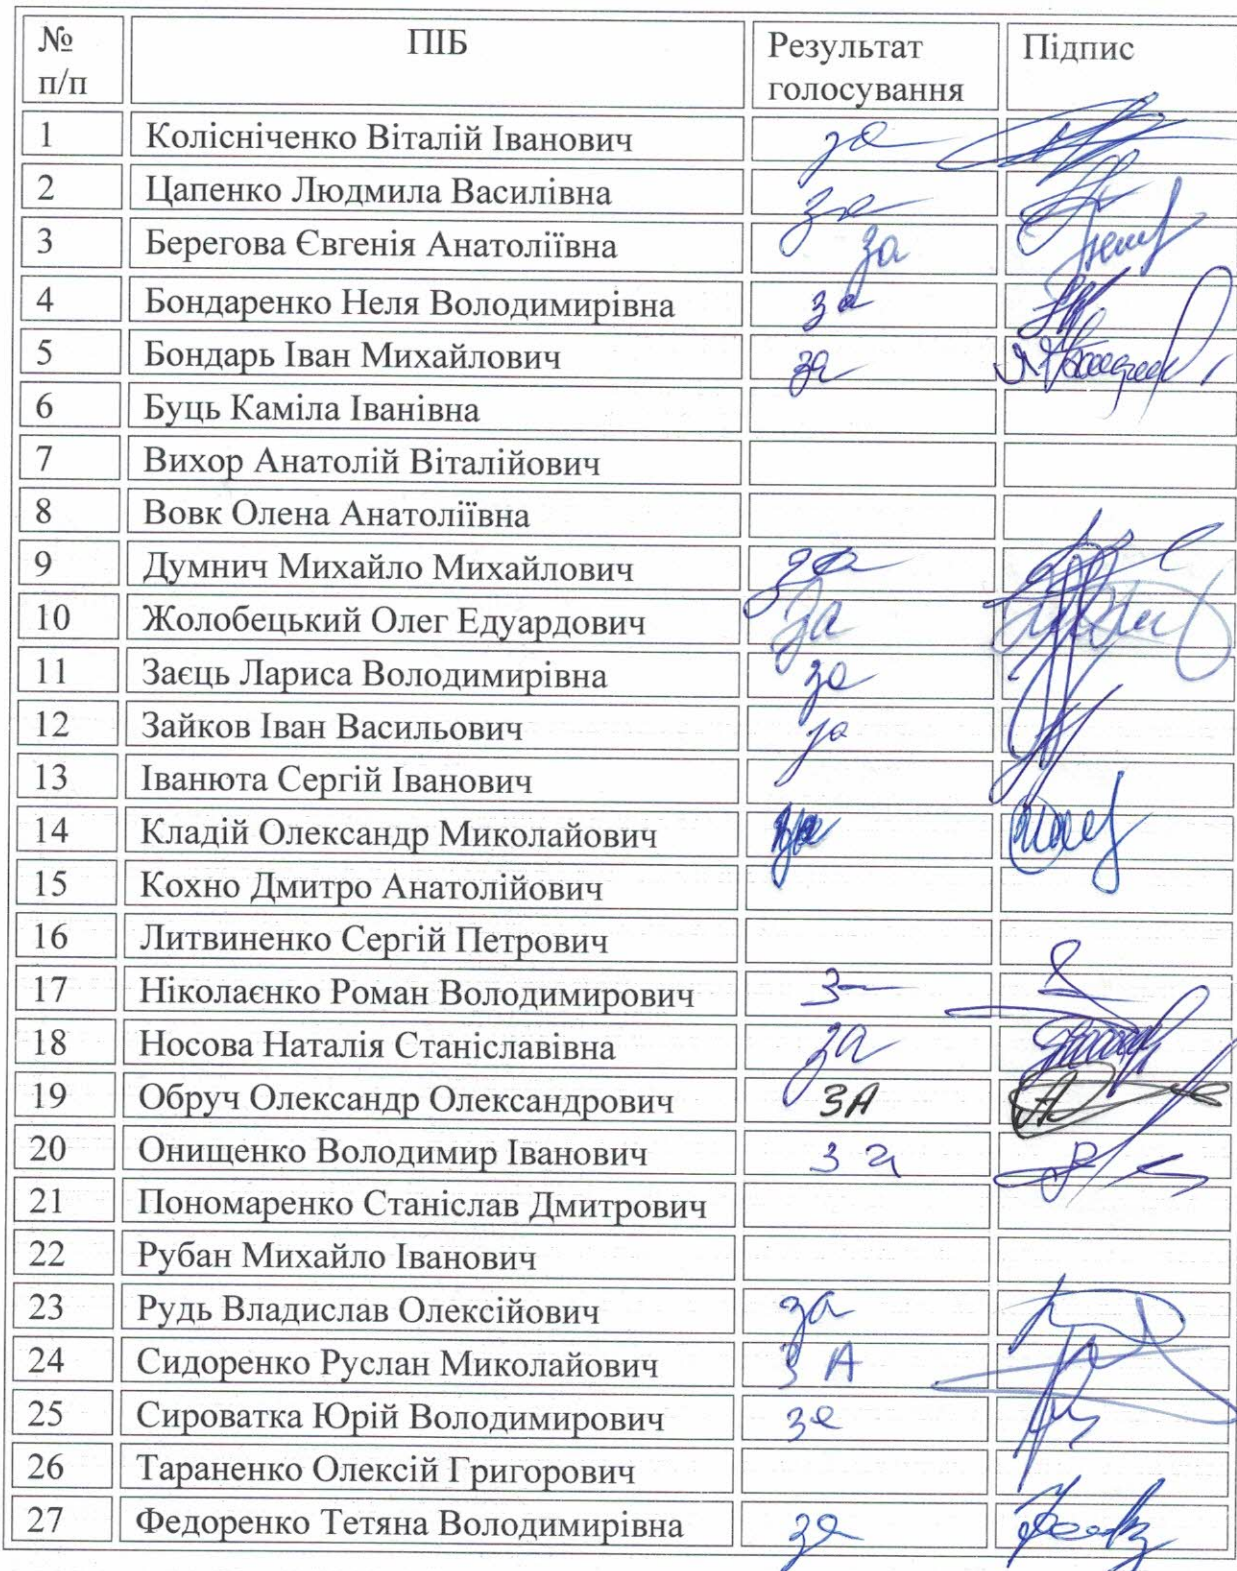 № п/п ПІБ Результат голосування Підпис
1 Колісніченко Віталій Іванович за
2 Цапенко Людмила Василівна за
3 Берегова Євгенія Анатоліївна за
4 Бондаренко Неля Володимирівна за
5 Бондарь Іван Михайлович за
6 Буць Каміла Іванівна
7 Вихор Анатолій Віталійович
8 Вовк Олена Анатоліївна
9 Думнич Михайло Михайлович за
10 Жолобецький Олег Едуардович за
11 Заєць Лариса Володимирівна за
12 Зайков Іван Васильович за
13 Іванюта Сергій Іванович
14 Кладій Олександр Миколайович за
15 Кохно Дмитро Анатолійович
16 Литвиненко Сергій Петрович
17 Ніколаєнко Роман Володимирович за
18 Носова Наталія Станіславівна за
19 Обруч Олександр Олександрович ЗА
20 Онищенко Володимир Іванович за
21 Пономаренко Станіслав Дмитрович
22 Рубан Михайло Іванович
23 Рудь Владислав Олексійович за
24 Сидоренко Руслан Миколайович ЗА
25 Сироватка Юрій Володимирович за
26 Тараненко Олексій Григорович
27 Федоренко Тетяна Володимирівна за